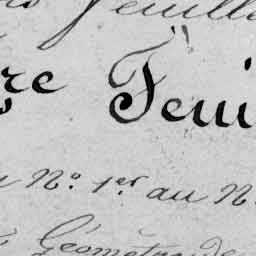 Feuille
re Feui
N.º 1.er au N.
Géomètre de